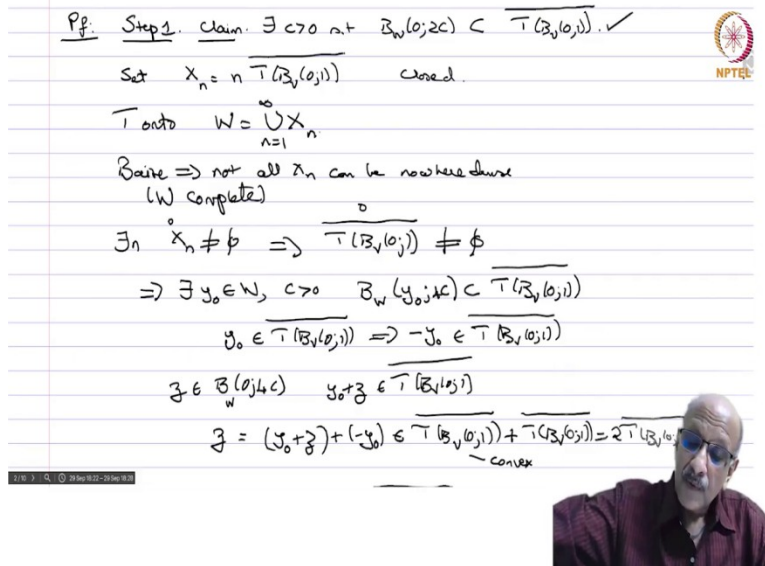 Pf: Step 1. Claim. ∃ c>0 s.t B_W(0;2c) ⊂ \overline{T(B_V(0;1))}. ✓
NPTEL
Set X_n = n \overline{T(B_V(0;1))} closed.
T onto W = \bigcup_{n=1}^{∞} X_n.
Baire => not all X_n can be nowhere dense
(W complete)
∃n \overset{o}{X}_n ≠ ∅ => \overset{o}{\overline{T(B_V(0;1))}} ≠ ∅
=> ∃ y_0 ∈ W, c>0 B_W(y_0;4c) ⊂ \overline{T(B_V(0;1))}
y_0 ∈ \overline{T(B_V(0;1))} => -y_0 ∈ \overline{T(B_V(0;1))}
z ∈ B_W(0;4c) y_0+z ∈ \overline{T(B_V(0;1))}
z = (y_0+z)+(-y_0) ∈ \overline{T(B_V(0;1))} + \overline{T(B_V(0;1))} = 2\overline{T(B_V(0;
- convex
2/10 29 Sep 18:22 - 29 Sep 18:28